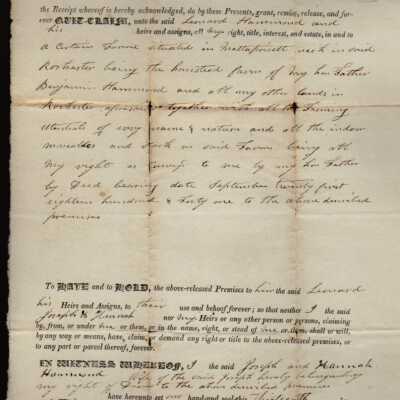 the Receipt whereof is hereby acknowledged, do by these Presents, grant, remise, release, and for-
ever QUIT-CLAIM, unto the said Leonard Hammond and
his heirs and assigns, all my right, title, interest, and estate, in and to
a Certain Farm situated in Mattapoisett neck in said
Rochester being the homestead farm of my hon Father
Benjamin Hammond and all my other lands in
Rochester together with all the Farming
Utentials of every name & nature and all the indoor
moveables and stock on said Farm being all
my right as convey to me by my hon Father
by Deed bearing date September twenty first
eighteen hundred & Forty one to the above demited
premises
To HAVE and to HOLD, the above-released Premises to him the said Leonard
his Heirs and Assigns, to their use and behoof forever; so that neither I the said
Joseph & Hannah nor my Heirs or any other person or persons, claiming
by, from, or under me or them, or in the name, right, or stead of me or them, shall or will,
by any way or means, have, claim, or demand any right or title to the above-released premises, or
to any part or parcel thereof, forever.
IN WITNESS WHEREOF, I the said Joseph and Hannah
Hammond wife of the said Joseph hereby relinquishing
my right of to the above demited premises
have hereunto set our hand and seal this thirteenth